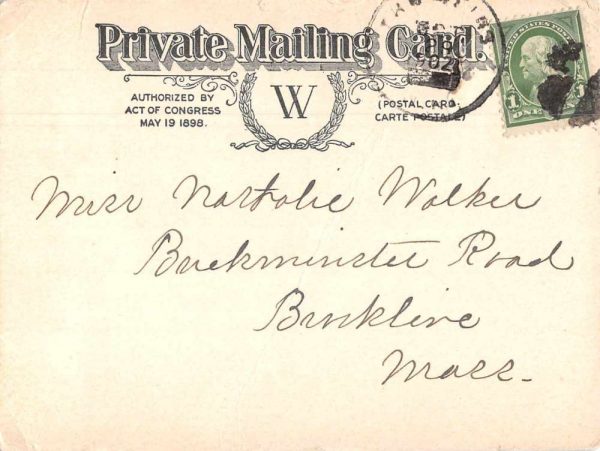 Private Mailing Card.
AUTHORIZED BY
ACT OF CONGRESS
MAY 19 1898.
W
(POSTAL CARD-
CARTE POSTALE)
UNITED STATES POSTAGE
1 ONE 1
Miss Nathalie Walker
Buckminster Road
Brookline
Mass.